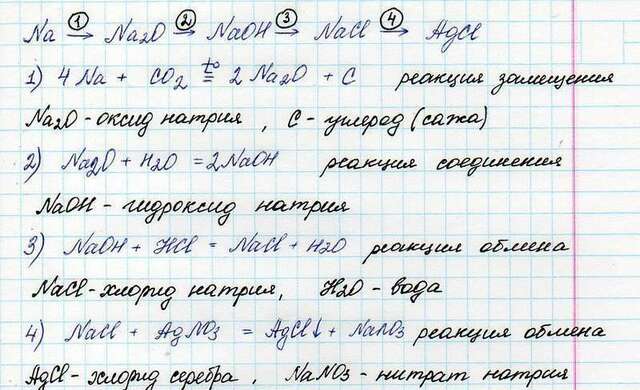 Na ①→ Na2O ②→ NaOH ③→ NaCl ④→ AgCl
1) 4Na + CO2 t°= 2Na2O + C реакция замещения
Na2O - оксид натрия , C - углерод (сажа)
2) Na2O + H2O = 2NaOH реакция соединения
NaOH - гидроксид натрия
3) NaOH + HCl = NaCl + H2O реакция обмена
NaCl - хлорид натрия, H2O - вода
4) NaCl + AgNO3 = AgCl↓ + NaNO3 реакция обмена
AgCl - хлорид серебра , NaNO3 - нитрат натрия